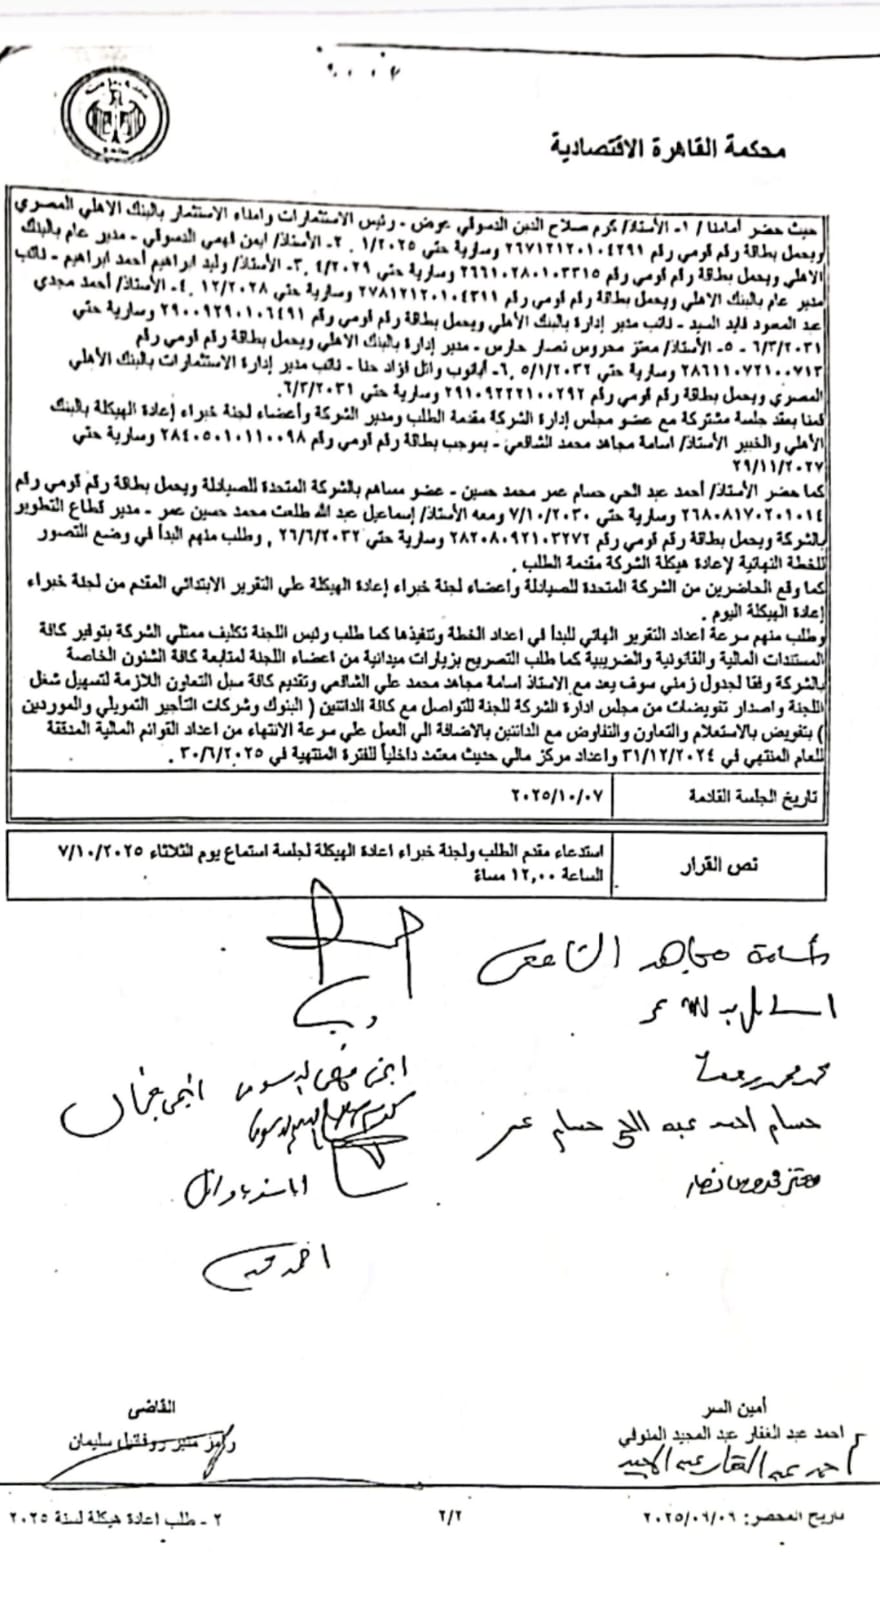 محكمة القاهرة الاقتصادية
حيث حضر أمامنا / ١- الأستاذ/ كرم صلاح الدين الدسوقي عوض - رئيس الاستثمارات وامناء الاستثمار بالبنك الاهلي المصري
ويحمل بطاقة رقم قومي رقم ٢٦٧١٢١٢٠١٠٤٢٩١ وسارية حتى ١/٢٠٢٥ . ٢- الأستاذ/ ايمن فهمي الدسوقي - مدير عام بالبنك
الاهلي ويحمل بطاقة رقم قومي رقم ٢٦٦١٠٢٨٠١٠٣٣١٥ وسارية حتي ٤/٢٠٢٩ ,٣- الأستاذ/ وليد ابراهيم أحمد ابراهيم - نائب
مدير عام بالبنك الاهلي ويحمل بطاقة رقم قومي رقم ٢٧٨١٢١٢٠١٠٤٣١١ وسارية حتي ١٢/٢٠٢٨ ,٤- الأستاذ/ أحمد مجدي
عبد المعبود فايد السيد - نائب مدير إدارة بالبنك الأهلي ويحمل بطاقة رقم قومي رقم ٢٩٠٠٩٢٩٠١٠٦٤٩١ وسارية حتي
٦/٣/٢٠٣١ - ٥- الأستاذ/ معتز محروس نصار حارس - مدير إدارة بالبنك الاهلي ويحمل بطاقة رقم قومي رقم
٢٨٦١١٠٧٢١٠٠٧١٣ وسارية حتي ٥/١/٢٠٣٢ ,٦- أبانوب وائل فؤاد حنا - نائب مدير إدارة الاستثمارات بالبنك الأهلي
المصري ويحمل بطاقة رقم قومي رقم ٢٩١٠٩٢٢٢١٠٠٢٩٢ وسارية حتي ٦/٣/٢٠٣١.
قمنا بعقد جلسة مشتركة مع عضو مجلس إدارة الشركة مقدمة الطلب ومدير الشركة وأعضاء لجنة خبراء إعادة الهيكلة بالبنك
الأهلي والخبير الأستاذ/ اسامة مجاهد محمد الشافعي - بموجب بطاقة رقم قومي رقم ٢٨٤٠٥٠١٠١١٠٠٩٨ وسارية حتي
٢٩/١١/٢٠٢٧
كما حضر الأستاذ/ أحمد عبد الحي حسام عمر محمد حسين - عضو مساهم بالشركة المتحدة للصيادلة ويحمل بطاقة رقم قومي رقم
٢٦٨٠٨١٧٠٢٠١٠١٤ وسارية حتي ٧/١٠/٢٠٣٠ ومعه الأستاذ/ إسماعيل عبد الله طلعت محمد حسين عمر - مدير قطاع التطوير
بالشركة ويحمل بطاقة رقم قومي رقم ٢٨٢٠٨٠٩٢١٠٣٢٧٢ وسارية حتي ٢٦/٦/٢٠٣٢ , وطلب منهم البدأ في وضع التصور
للخطة النهائية لإعادة هيكلة الشركة مقدمة الطلب .
كما وقع الحاضرين من الشركة المتحدة للصيادلة واعضاء لجنة خبراء إعادة الهيكلة علي التقرير الابتدائي المقدم من لجنة خبراء
إعادة الهيكلة اليوم .
وطلب منهم سرعة اعداد التقرير الهائي للبدأ في اعداد الخطة وتنفيذها كما طلب رئيس اللجنة تكليف ممثلي الشركة بتوفير كافة
المستندات المالية والقانونية والضريبية كما طلب التصريح بزيارات ميدانية من اعضاء اللجنة لمتابعة كافة الشئون الخاصة
بالشركة وفقا لجدول زمني سوف يعد مع الاستاذ اسامة مجاهد محمد علي الشافعي وتقديم كافة سبل التعاون اللازمة لتسهيل شغل
اللجنة واصدار تفويضات من مجلس ادارة الشركة للجنة للتواصل مع كافة الدائنين ( البنوك وشركات التأجير التمويلي والموردين
) بتفويض بالاستعلام والتعاون والتفاوض مع الدائنين بالاضافة الي العمل علي سرعة الانتهاء من اعداد القوائم المالية المدققة
للعام المنتهي في ٣١/١٢/٢٠٢٤ واعداد مركز مالي حديث معتمد داخلياً للفترة المنتهية في ٣٠/٦/٢٠٢٥ .
تاريخ الجلسة القادمة ٢٠٢٥/١٠/٠٧
نص القرار استدعاء مقدم الطلب ولجنة خبراء اعادة الهيكلة لجلسة استماع يوم الثلاثاء ٧/١٠/٢٠٢٥
الساعة ١٢,٠٠ مساءً
أسامة مجاهد الشافعي
حسام احمد عبد الحي حسام عمر
معتز محروس نصار
ايمن فهمي الدسوقي
احمد مجدي
أمين السر
احمد عبد الغفار عبد المجيد المنوفي
احمد عبد الغفار عبد المجيد
القاضى
رامز منير روفائيل سليمان
تاريخ المحضر: ٢٠٢٥/٠٦/٠٦
٢/٢
٢ - طلب اعادة هيكلة لسنة ٢٠٢٥